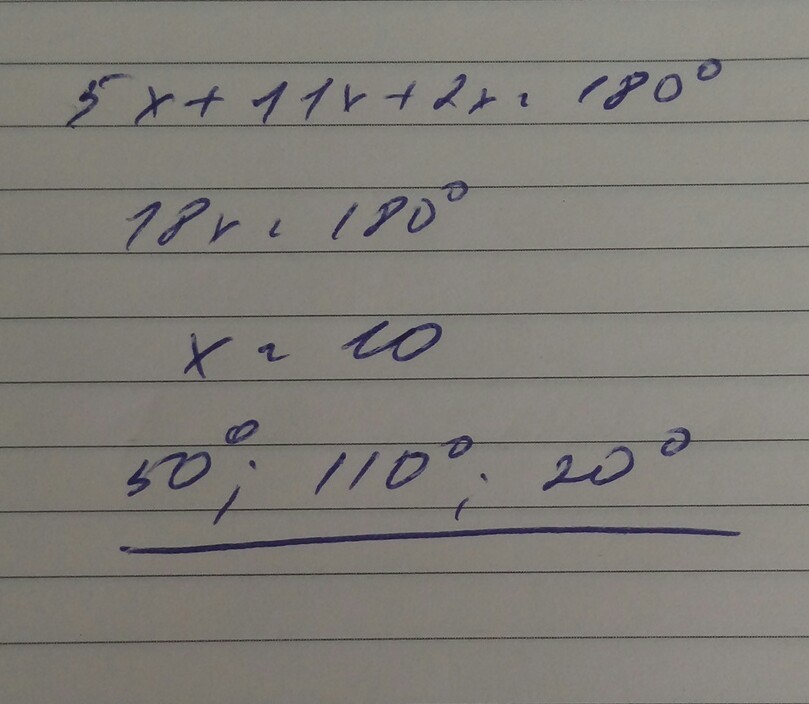 5x + 11x + 2x = 180°
18x = 180°
x = 10
50°; 110°; 20°